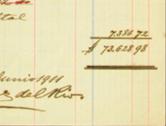 tal
7,386.72
$ 73,628.98
Junio 1911
z del Rio